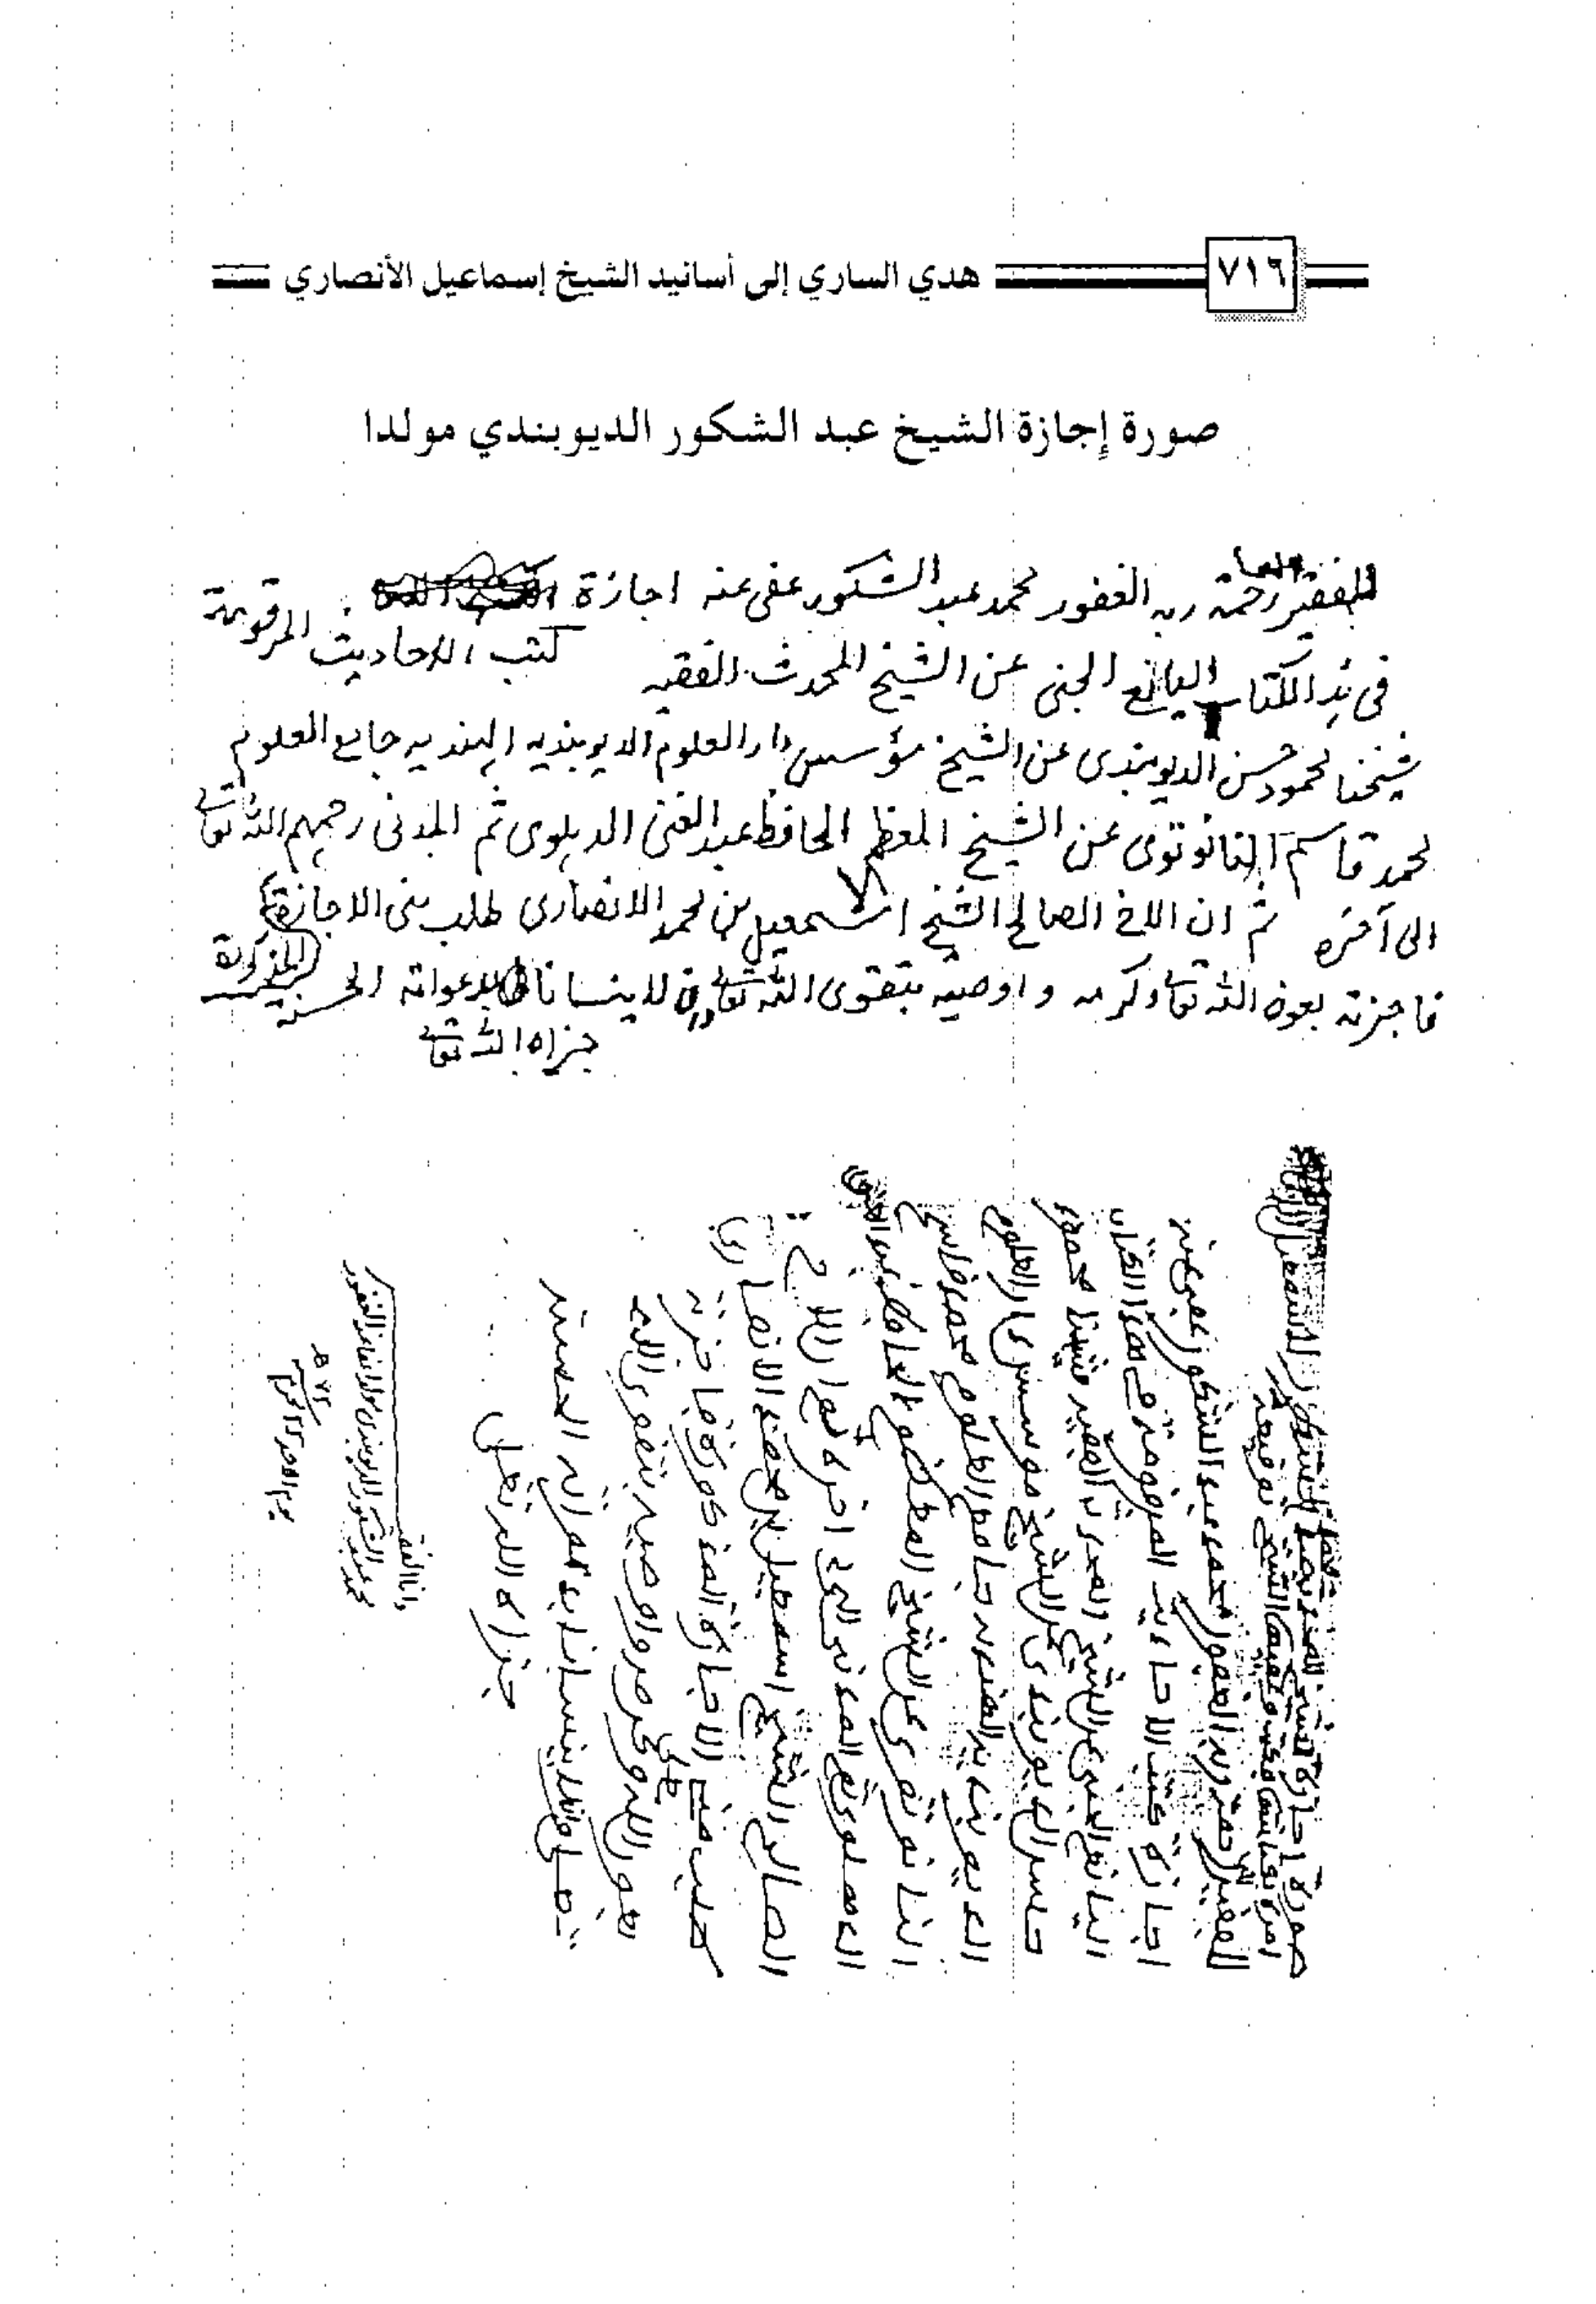 ٧١٦
هدي الساري إلى أسانيد الشيخ إسماعيل الأنصاري
صورة إجازة الشيخ عبد الشكور الديوبندي مولدا
للفقير رحمة ربه الغفور محمد عبد الشكور عفى عنه اجازة
كتب الاحاديث المرقومة
فى هذا الكتاب اليانع الجنى عن الشيخ المحدث الفقيه
شيخنا محمود حسن الديوبندى عن الشيخ مؤسس دار العلوم الديوبنديه الهنديه جامع العلوم
محمد قاسم النانوتوى عن الشيخ المعظم الحافظ عبد الغنى الدهلوى ثم المدنى رحمهم الله تعالى
الى آخره ثم ان الاخ الصالح الشيخ اسمعيل بن محمد الانصارى طلب منى الاجازة
المذكورة
فاجزته بعون الله تعالى وكرمه واوصيه بتقوى الله تعالى وان لا ينسانا بدعواته الحسنة
جزاه الله تعالى
صورة اجازة الشيخ
الفقير رحمة ربه الغفور محمد عبد الشكور عفى عنه
اجازة كتب الاحاديث المرقومة في هذا الكتاب
اليانع الجنى عن الشيخ المحدث الفقيه شيخنا محمود
حسن الديوبندى عن الشيخ مؤسس دار العلوم
الديوبنديه الهنديه جامع العلوم محمد قاسم
النانوتوى عن الشيخ المعظم الحافظ عبد الغنى
الدهلوى ثم المدنى الى اخره ثم ان الاخ
الصالح الشيخ اسمعيل بن محمد الانصارى
طلب منى الاجازة المذكورة فاجزته
بعون الله وكرمه واوصيه بتقوى الله
تعالى وان لا ينسانا بدعواته الحسنة
جزاه الله تعالى
وانا الفقير
محمد عبد الشكور الديوبندى مولدا
يوم الاحد